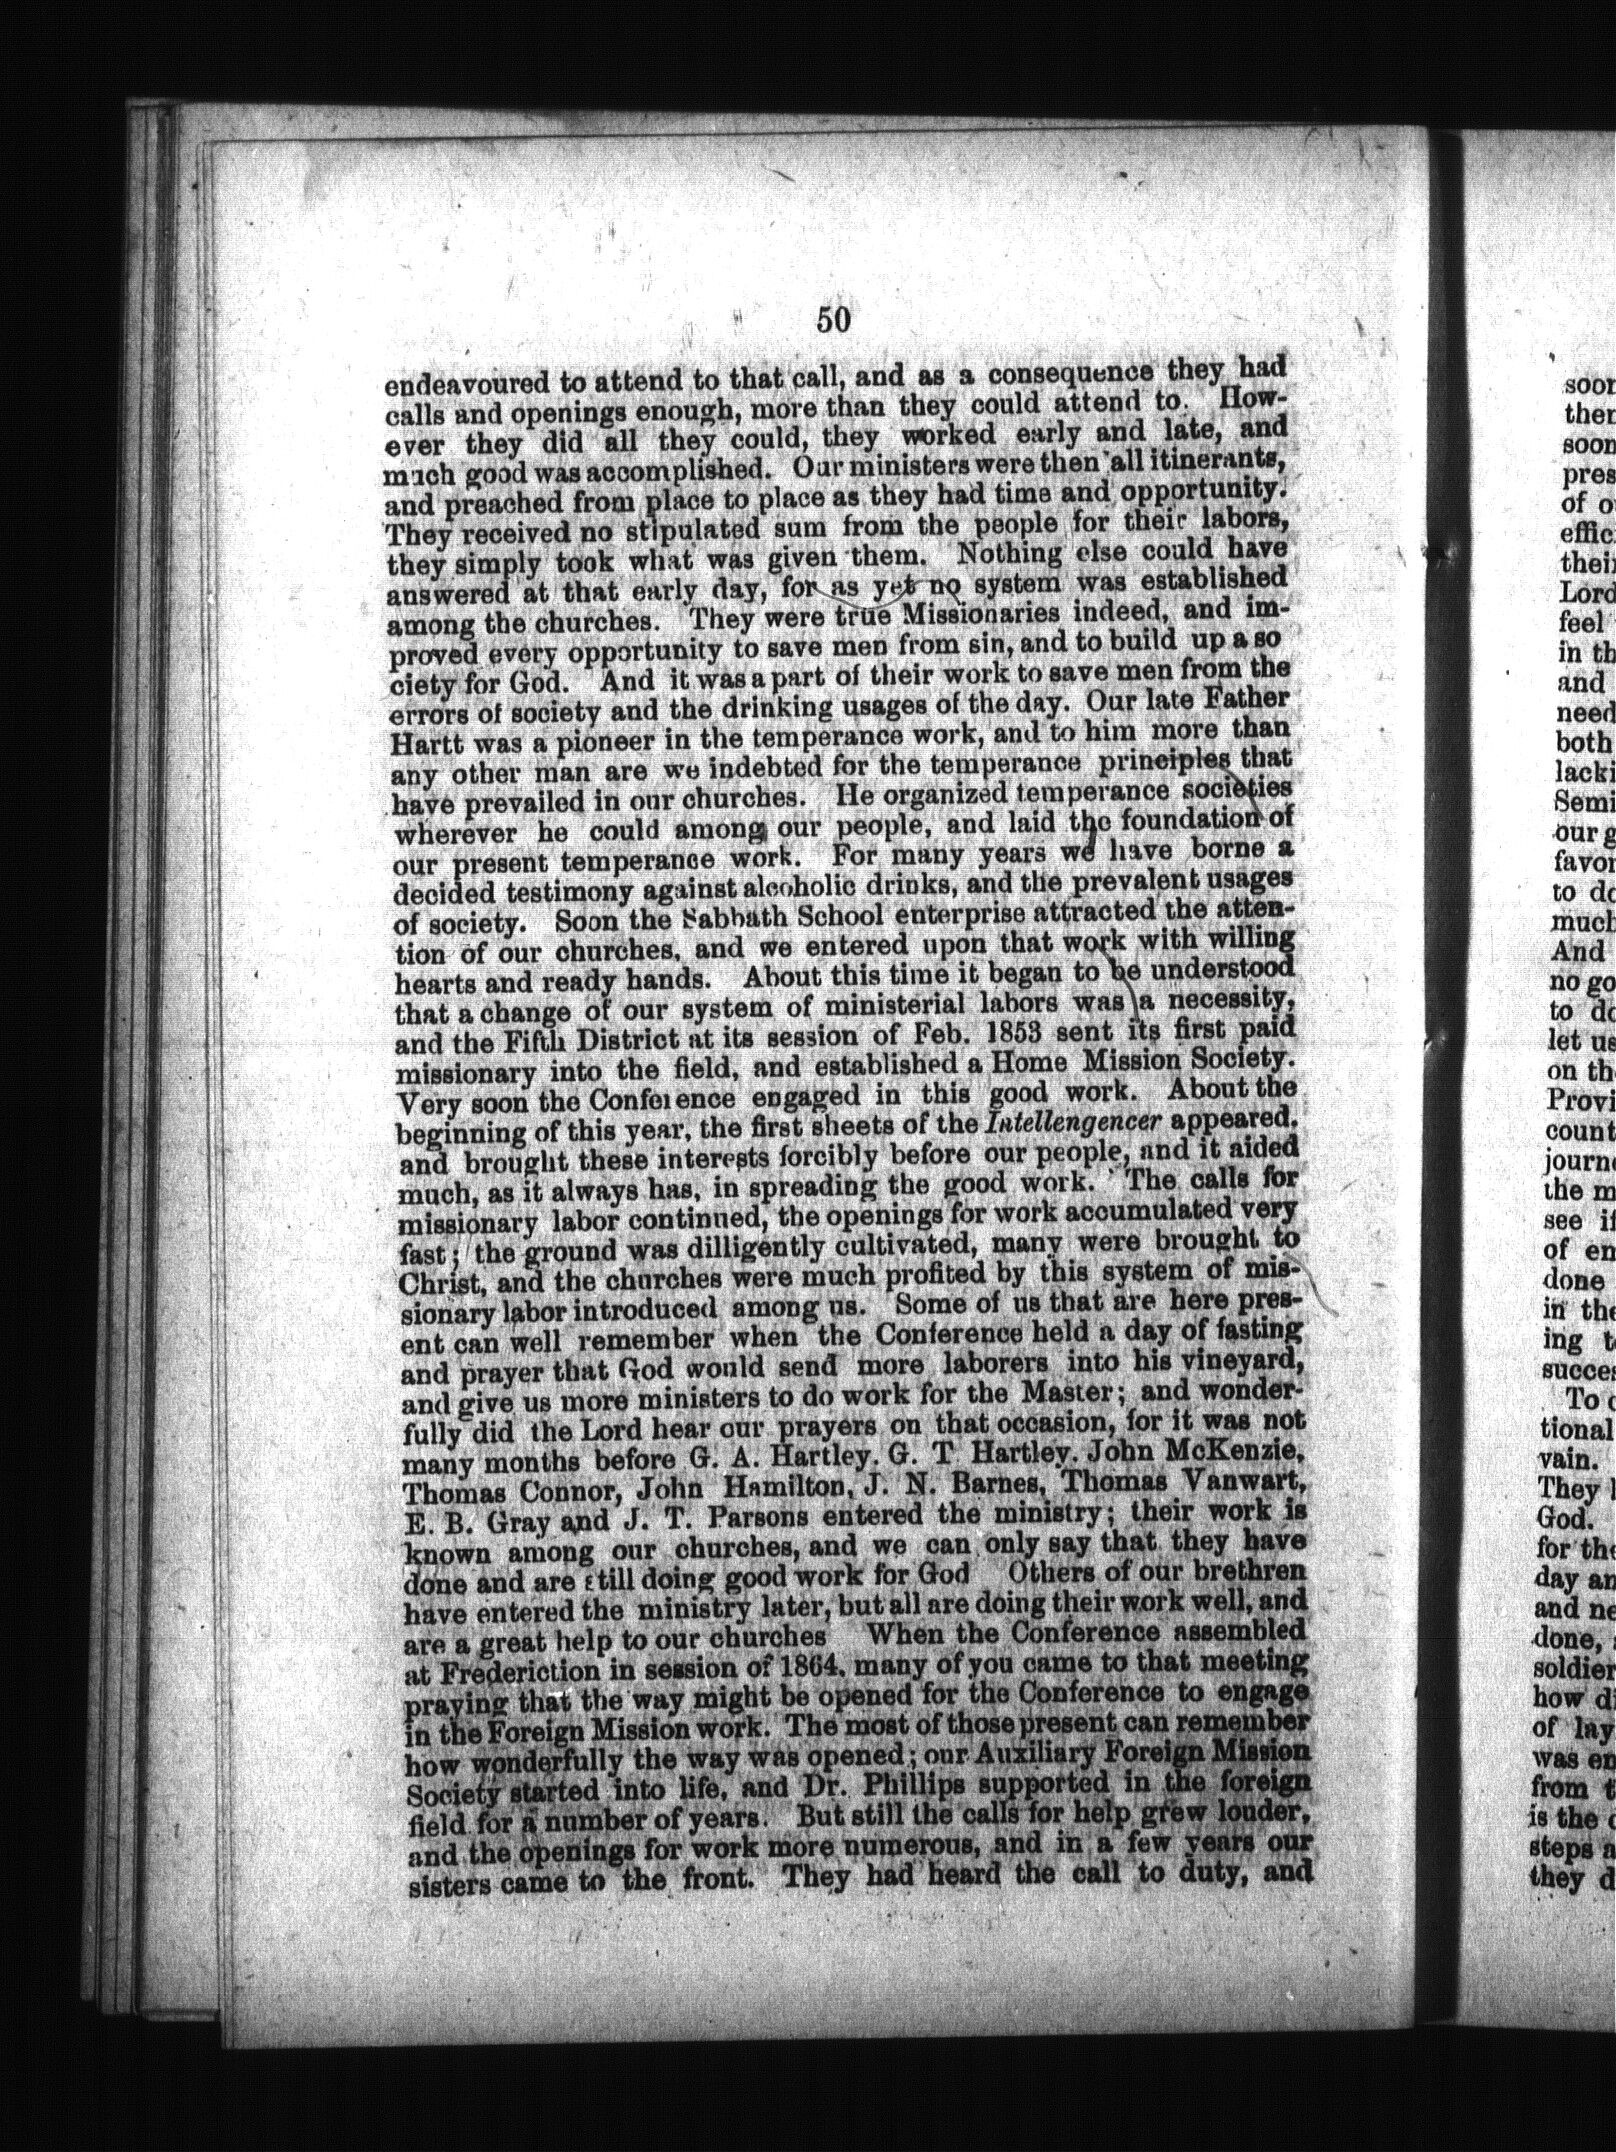 50
endeavoured to attend to that call, and as a consequence they had
calls and openings enough, more than they could attend to. How-
ever they did all they could, they worked early and late, and
much good was accomplished. Our ministers were then all itinerants,
and preached from place to place as they had time and opportunity.
They received no stipulated sum from the people for their labors,
they simply took what was given them. Nothing else could have
answered at that early day, for as yet no system was established
among the churches. They were true Missionaries indeed, and im-
proved every opportunity to save men from sin, and to build up a so
ciety for God. And it was a part of their work to save men from the
errors of society and the drinking usages of the day. Our late Father
Hartt was a pioneer in the temperance work, and to him more than
any other man are we indebted for the temperance principles that
have prevailed in our churches. He organized temperance societies
wherever he could among our people, and laid the foundation of
our present temperance work. For many years we have borne a
decided testimony against alcoholic drinks, and the prevalent usages
of society. Soon the Sabbath School enterprise attracted the atten-
tion of our churches, and we entered upon that work with willing
hearts and ready hands. About this time it began to be understood
that a change of our system of ministerial labors was a necessity,
and the Fifth District at its session of Feb. 1853 sent its first paid
missionary into the field, and established a Home Mission Society.
Very soon the Conference engaged in this good work. About the
beginning of this year, the first sheets of the Intellengencer appeared.
and brought these interests forcibly before our people, and it aided
much, as it always has, in spreading the good work. The calls for
missionary labor continued, the openings for work accumulated very
fast; the ground was dilligently cultivated, many were brought to
Christ, and the churches were much profited by this system of mis-
sionary labor introduced among us. Some of us that are here pres-
ent can well remember when the Conference held a day of fasting
and prayer that God would send more laborers into his vineyard,
and give us more ministers to do work for the Master; and wonder-
fully did the Lord hear our prayers on that occasion, for it was not
many months before G. A. Hartley. G. T Hartley. John McKenzie,
Thomas Connor, John Hamilton, J. N. Barnes, Thomas Vanwart,
E. B. Gray and J. T. Parsons entered the ministry; their work is
known among our churches, and we can only say that they have
done and are still doing good work for God Others of our brethren
have entered the ministry later, but all are doing their work well, and
are a great help to our churches When the Conference assembled
at Frederiction in session of 1864, many of you came to that meeting
praying that the way might be opened for the Conference to engage
in the Foreign Mission work. The most of those present can remember
how wonderfully the way was opened; our Auxiliary Foreign Mission
Society started into life, and Dr. Phillips supported in the foreign
field for a number of years. But still the calls for help grew louder,
and the openings for work more numerous, and in a few years our
sisters came to the front. They had heard the call to duty, and
soon
pres
of
their
Lord
feel
and
need
both
our
to
much
And
no go
to do
let us
see if
of
done
To
vain.
They
God.
and
done,
how
of
from
is the
steps
they